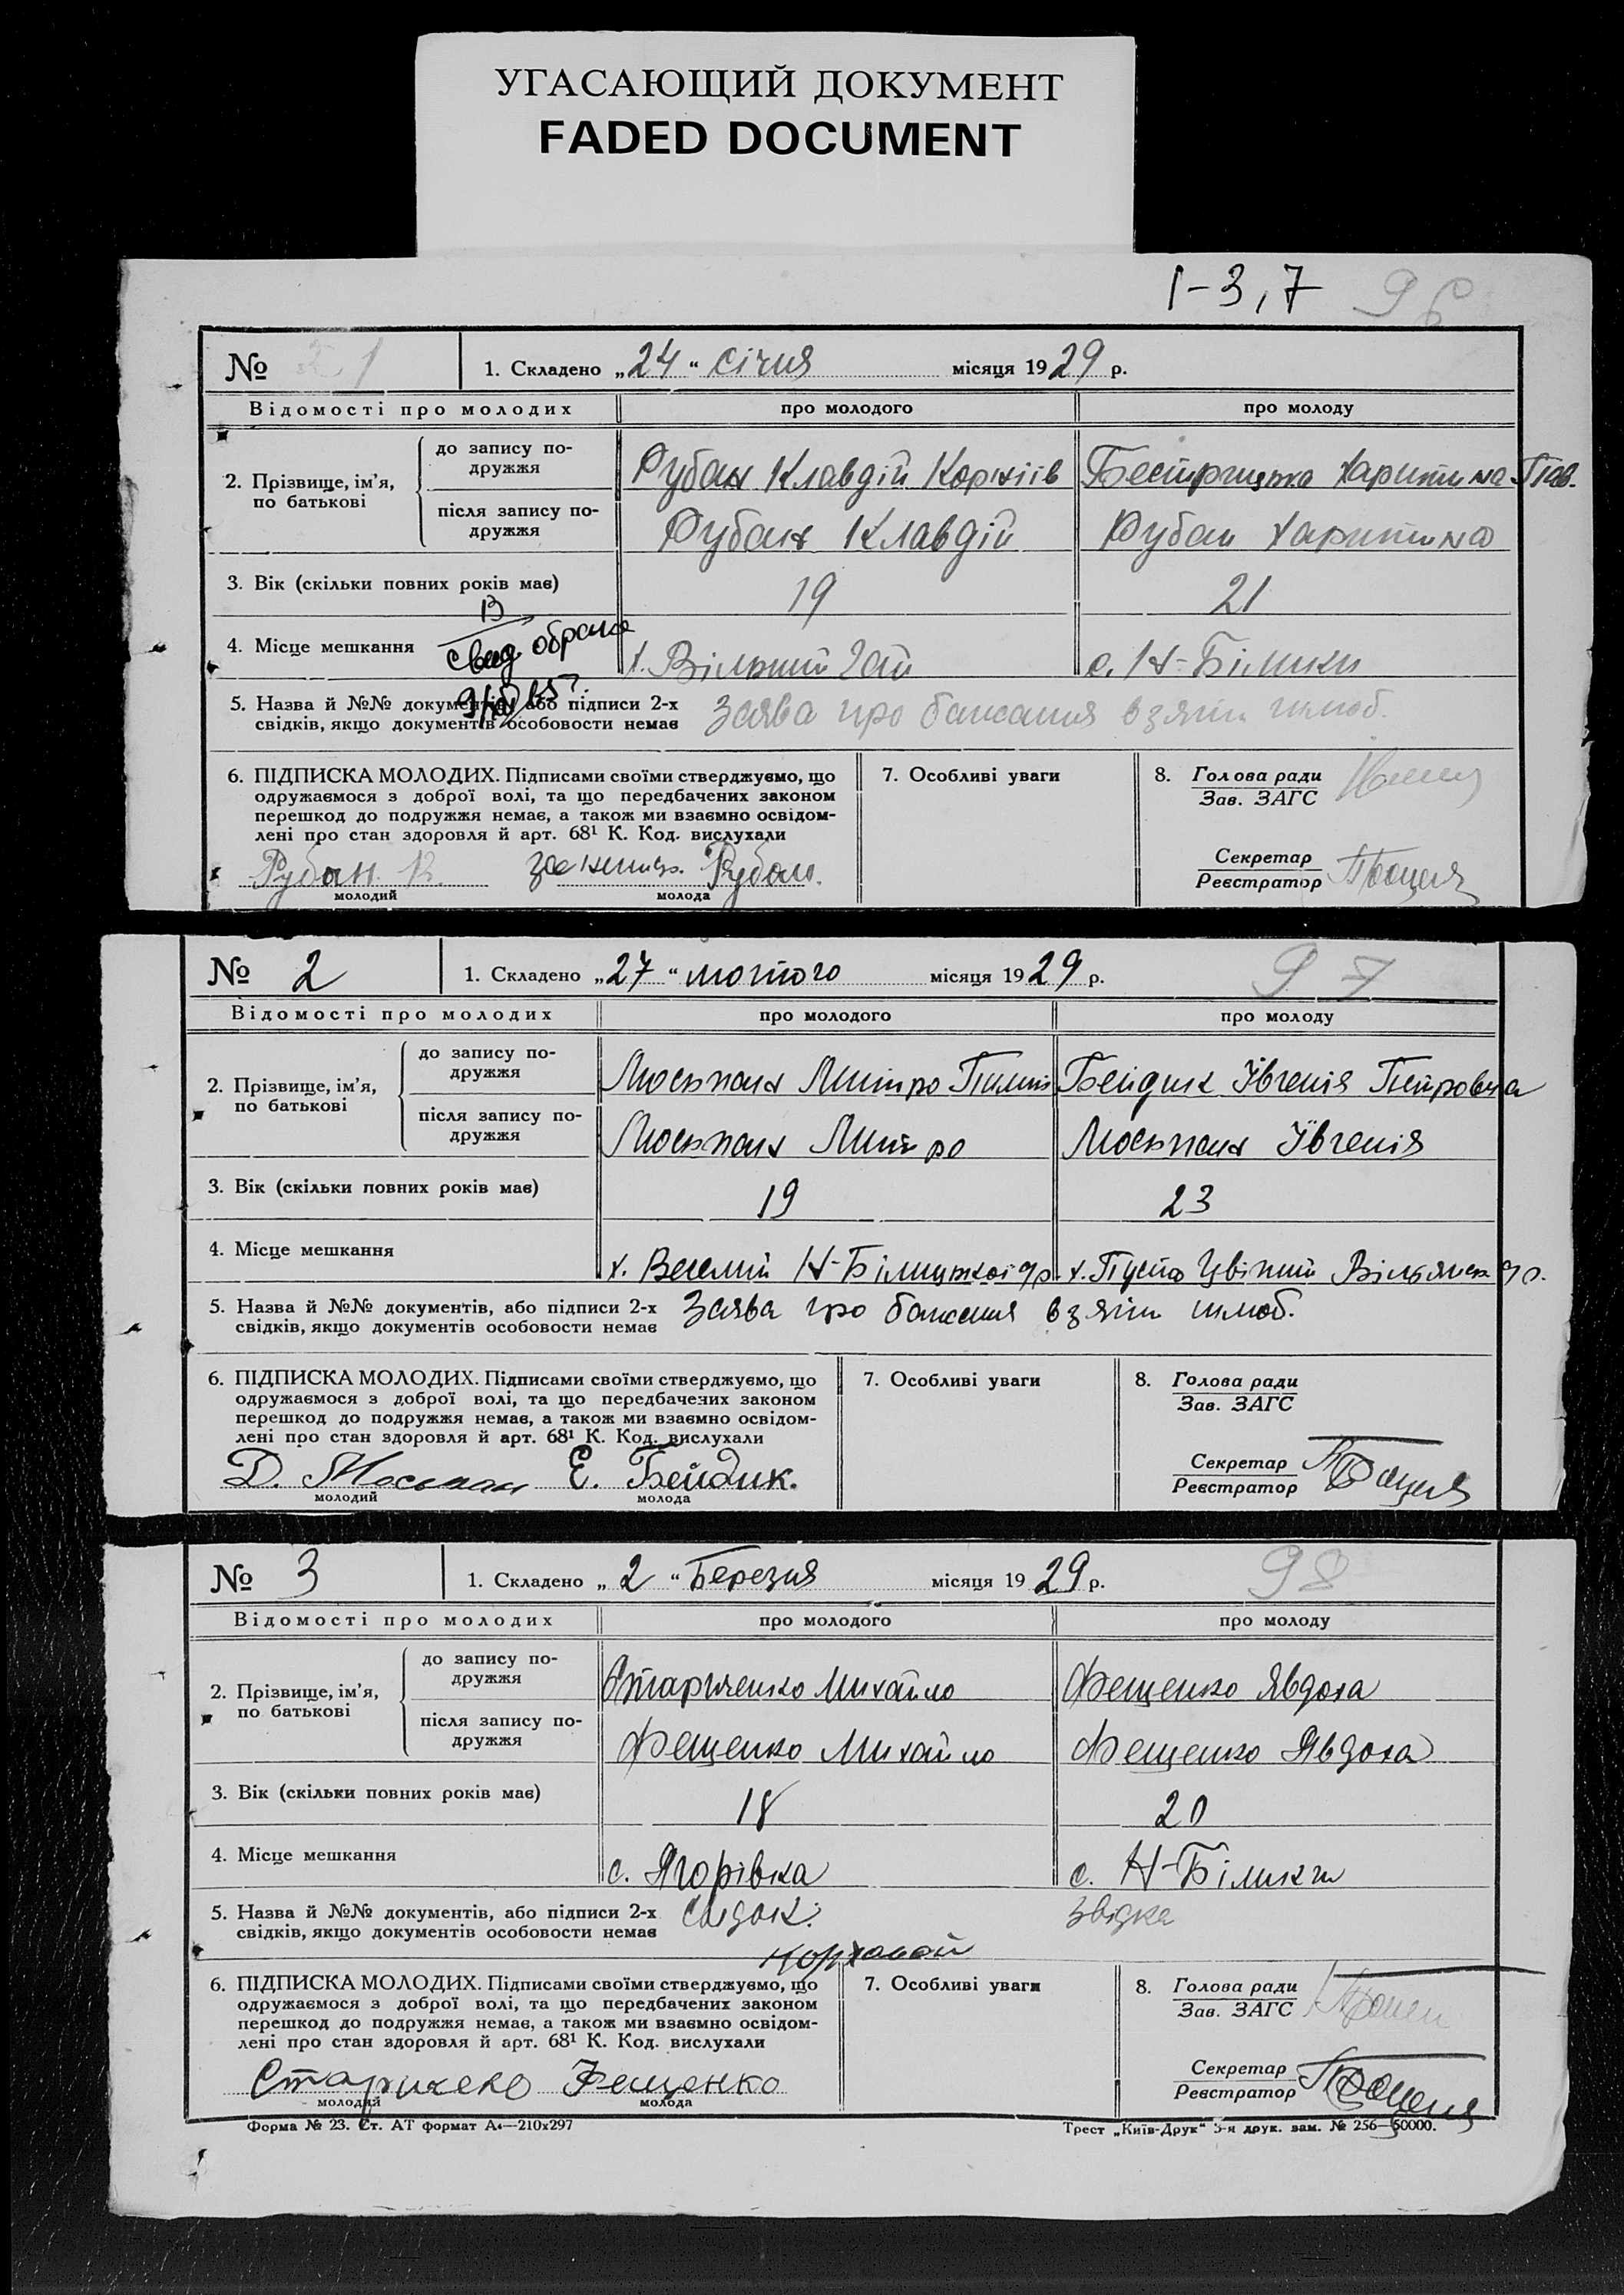 УГАСАЮЩИЙ ДОКУМЕНТ
FADED DOCUMENT
1-3,7 96
№ 1 1. Складено „24“ січня місяця 1929 р.
Відомості про молодих про молодого про молоду
2. Прізвище, ім’я, по батькові
до запису подружжя Рубан Клавдій Харитина Пав.
після запису подружжя Рубан Клавдій Рубан Харитина
3. Вік (скільки повних років має) 19 21
4. Місце мешкання х. Вільний Гай с. Н-Білики
В
5. Назва й №№ документів, або підписи 2-х
свідків, якщо документів особовости немає Заява про бажання взяти шлюб.
6. ПІДПИСКА МОЛОДИХ. Підписами своїми стверджуємо, що
одружаємося з доброї волі, та що передбачених законом
перешкод до подружжя немає, а також ми взаємно освідом-
лені про стан здоровля й арт. 68¹ К. Код. вислухали
Рубан К. Рубан.
молодий молода
7. Особливі уваги
8. Голова ради
Зав. ЗАГС
Секретар
Реєстратор
№ 2 1. Складено „27“ лютого місяця 1929 р. 97
Відомості про молодих про молодого про молоду
2. Прізвище, ім’я, по батькові
до запису подружжя Москпан Митро Бейдик Івгенія Петровна
після запису подружжя Митро Івгенія
3. Вік (скільки повних років має) 19 23
4. Місце мешкання х. Веселий Н-Білицької х. Цвітний
5. Назва й №№ документів, або підписи 2-х
свідків, якщо документів особовости немає Заява про бажання взяти шлюб.
6. ПІДПИСКА МОЛОДИХ. Підписами своїми стверджуємо, що
одружаємося з доброї волі, та що передбачених законом
перешкод до подружжя немає, а також ми взаємно освідом-
лені про стан здоровля й арт. 68¹ К. Код. вислухали
Д. Е. Бейдик.
молодий молода
7. Особливі уваги
8. Голова ради
Зав. ЗАГС
Секретар
Реєстратор
№ 3 1. Складено „2“ Березня місяця 1929 р. 98
Відомості про молодих про молодого про молоду
2. Прізвище, ім’я, по батькові
до запису подружжя Стариченко Михайло Фещенко Явдоха
після запису подружжя Фещенко Михайло Фещенко Явдоха
3. Вік (скільки повних років має) 18 20
4. Місце мешкання с. Ягорівка с. Н-Білики
5. Назва й №№ документів, або підписи 2-х
свідків, якщо документів особовости немає
6. ПІДПИСКА МОЛОДИХ. Підписами своїми стверджуємо, що
одружаємося з доброї волі, та що передбачених законом
перешкод до подружжя немає, а також ми взаємно освідом-
лені про стан здоровля й арт. 68¹ К. Код. вислухали
Фещенко
молодий молода
7. Особливі уваги
8. Голова ради
Зав. ЗАГС
Секретар
Реєстратор
Форма № 23. Ст. АТ формат А₄—210х297 Трест „Київ-Друк“ 3-я друк. зам. № 256—50000.